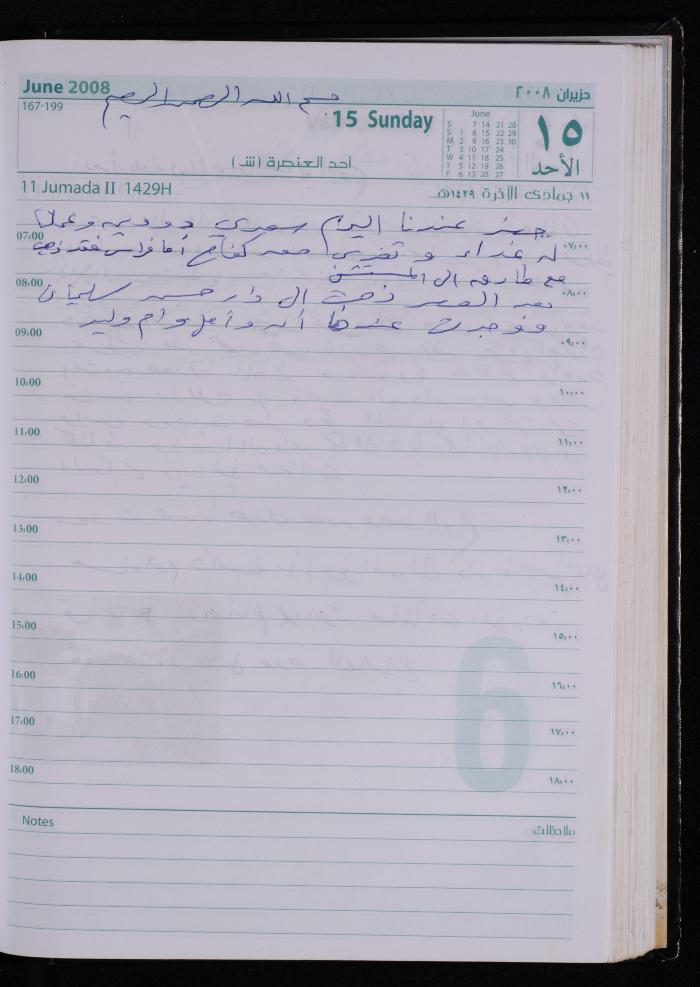 June 2008
حزيران ٢٠٠٨
بسم الله الرحمن الرحيم
167-199
15 Sunday
June
S 7 14 21 28
S 1 8 15 22 29
M 2 9 16 23 30
T 3 10 17 24
W 4 11 18 25
T 5 12 19 26
F 6 13 20 27
١٥
الأحد
أحد العنصرة (ش)
11 Jumada II 1429H
١١ جمادى الآخرة ١٤٢٩هـ
عندنا اليوم سعدي وعملنا
07:00
٠٧:٠٠
له غداء و معه كفاح أما فراس فقد ذهب
مع طارق الى المستشفى
08:00
٠٨:٠٠
بعد العصر ذهبت الى دار حسن سليمان
فوجدت عندها وأمل وام وليد
09:00
٠٩:٠٠
10:00
١٠:٠٠
11:00
١١:٠٠
12:00
١٢:٠٠
13:00
١٣:٠٠
14:00
١٤:٠٠
15:00
١٥:٠٠
6
16:00
١٦:٠٠
17:00
١٧:٠٠
18:00
١٨:٠٠
Notes
ملاحظات